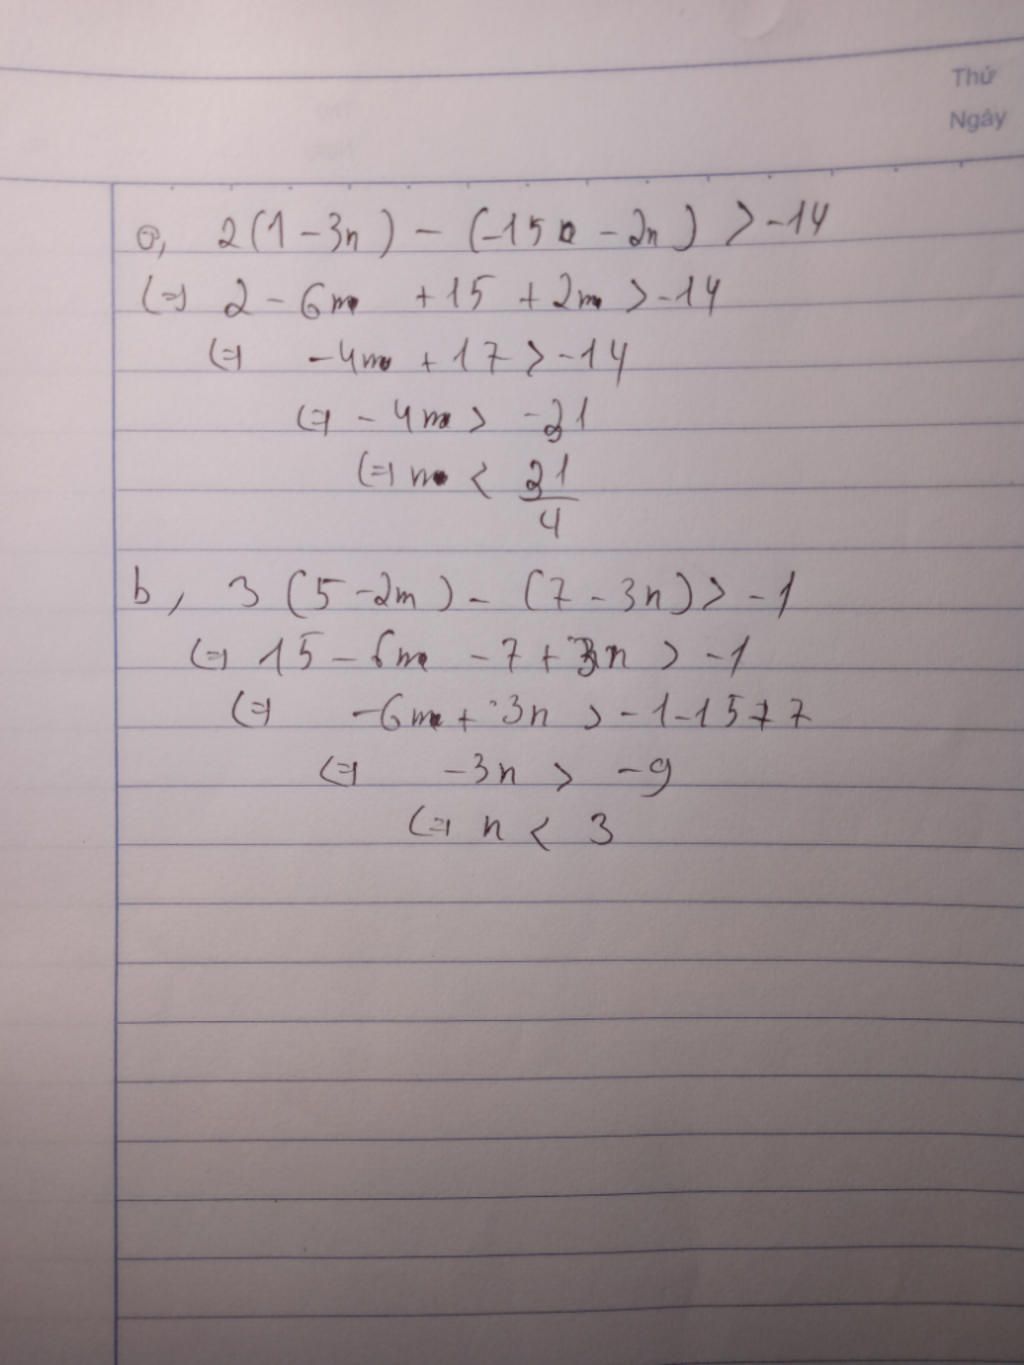 Thứ
Ngày
a, 2(1-3n) - (-15 - 2n) > -14
(=) 2 - 6m + 15 + 2m > -14
(=) -4m + 17 > -14
(=) -4m > -31
(=) m < 31/4
b, 3(5-2m) - (7-3n) > -1
(=) 15 - 6m - 7 + 3n > -1
(=) -6m + 3n > -1-15+7
(=) -3n > -9
(=) n < 3